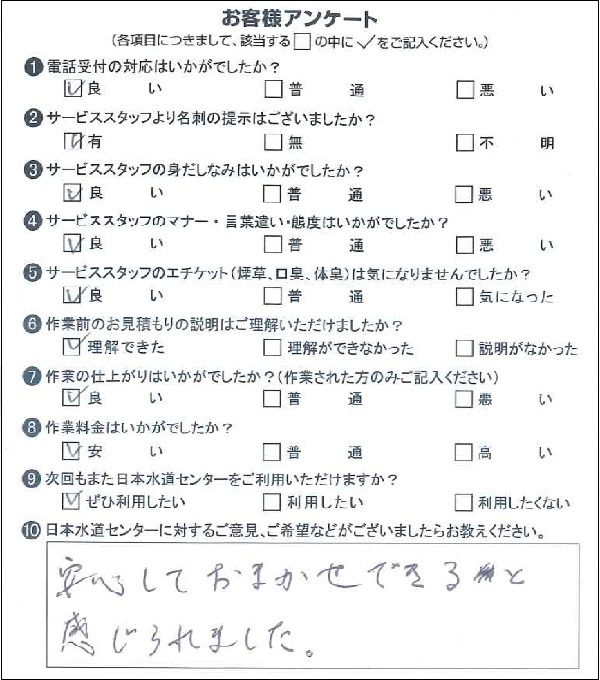 お客様アンケート
(各項目につきまして、該当する□の中に✓をご記入ください。)
❶電話受付の対応はいかがでしたか?
☑良い □普通 □悪い
❷サービススタッフより名刺の提示はございましたか?
☑有 □無 □不明
❸サービススタッフの身だしなみはいかがでしたか?
☑良い □普通 □悪い
❹サービススタッフのマナー・言葉遣い・態度はいかがでしたか?
☑良い □普通 □悪い
❺サービススタッフのエチケット(煙草、口臭、体臭)は気になりませんでしたか?
☑良い □普通 □気になった
❻作業前のお見積もりの説明はご理解いただけましたか?
☑理解できた □理解ができなかった □説明がなかった
❼作業の仕上がりはいかがでしたか?(作業された方のみご記入ください)
☑良い □普通 □悪い
❽作業料金はいかがでしたか?
☑安い □普通 □高い
❾次回もまた日本水道センターをご利用いただけますか?
☑ぜひ利用したい □利用したい □利用したくない
❿日本水道センターに対するご意見、ご希望などがございましたらお教えください。
安心しておまかせできると
感じられました。